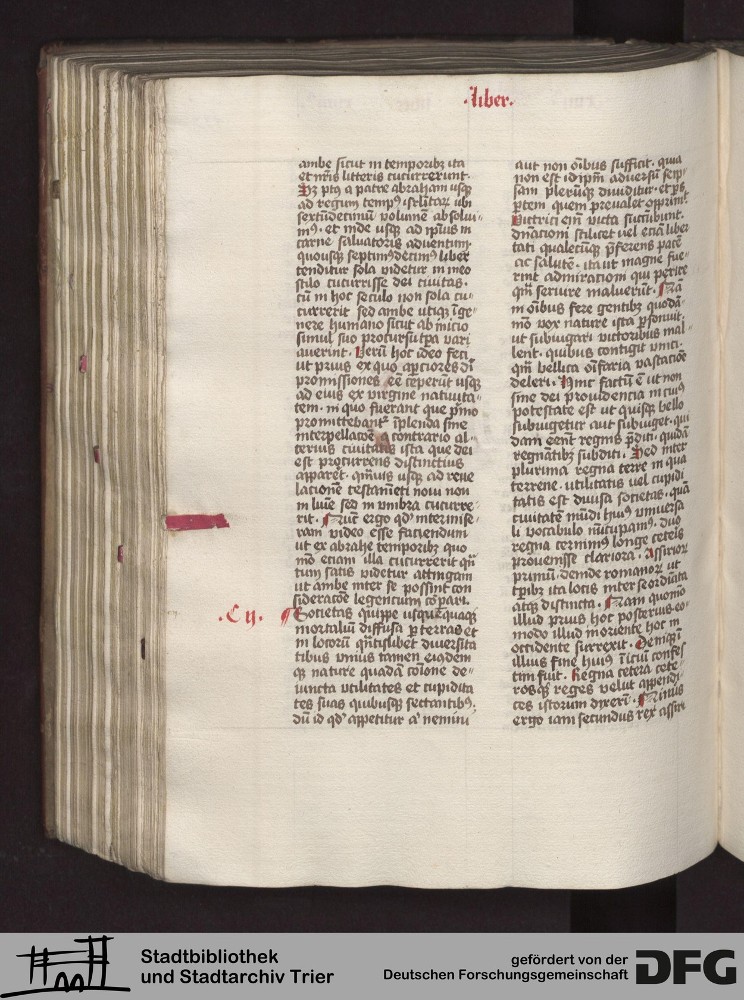 ·liber·
ambe sicut in temporibꝫ ita
et nr̄is litteris cucurrerunt·
Hꝫ ptꝰ a patre abraham usqꝫ
ad regum tempꝰ isrl'itaꝝ ubi
sextūdecimū volumē absolui-
mꝰ· et inde usqꝫ ad ip̄ius in
carne saluatoris aduentum·
quousqꝫ septimꝰdecimꝰ liber
tenditur sola videtur in meo
stilo cucurrisse dei ciuitas·
cū in hoc seculo non sola cu-
currerit sed ambe utiqꝫ ī ge-
nere humano sicut ab inicio
simul suo
auerint· Verū hoc ideo feci
ut prius ex quo ap̄ciores di
promissiones eē ceperūt usqꝫ
ad eius ex virgine natiuita-
tem· in quo fuerant que p̄mo
promittebantᷣ īplenda sine
interpellacōe A contrario al-
terius ciuitatis ista que dei
est procurrens distinctius
apparet· qm̄uis usqꝫ ad reue
lationē testam̄eti noui non
in lum̄e sed in vmbra cucurre-
rit· Nūc ergo qd' intermise-
ram video esse faciendum
ut ex abrahe temporibꝫ quo
mō eciam illa cucurrerit qn̄
tum satis videtur attingam
ut ambe inter se possint con
sideracōe legencium cōpari·
·C ij· ¶ Societas quippe usqueqꝫquaqꝫ
mortaliū diffusa ꝑ terras et
in locorū qn̄tislibet diuersita
tibus vnius tamen eiusdem
qꝫ nature quadā cōione de-
uincta vtilitates et cupidita
tes suas quibusqꝫ sectantibꝰ·
dū id qd' appetitur aꞌ nemini
aut non oībus sufficit· quia
non est id ip̄m aduersū seip-
sam plerūqꝫ diuiditur· et ꝑs
ꝑtem quem preualet opprimit
Victrici em̄ victa succūbunt·
dn̄acioni scilicet uel eciā liber
tati qualecūqꝫ p̄ferens pacē
ac salutē· ita ut magne fue-
rint admiracioni qui perire
qm̄ seruire maluerūt· Na
in oībus fere gentibꝫ quodā-
mō vox nature ista ꝑsonuit·
ut subiugari victoribus mal-
lent· quibus contigit vinci·
qm̄ bellica oīfaria vastacioē
deleri· Hinc factū ē ut non
sine dei prouidencia in cuiꝰ
potestate est ut quisqꝫ bello
subiugetur aut subiuget· qui
dam eent regnis p̄diti· quidā
regnātibꝫ subditi· Sed inter
plurima regna terre in qua
terrene· utilitatis uel cupidi
tatis est diuisa societas· quā
ciuitatē mūdi huiꝰ vniuersa
li vocabulo nūcupamꝰ· duo
regna cernimꝰ longe ceteīs
prouenisse clariora· Assirioꝝ
primū· deinde romanoꝝ ut
tꝑibꝫ ita locis inter se ordīata
atqꝫ distincta· Nam quomō
illud prius hoc posterius eo-
modo illud in oriente hoc in
occidente surrexit· Deniqꝫ ī
illius fine huiꝰ īiciū confes
tim fuit· Regna cetera cete-
rosqꝫ reges velut appendi-
ces istorum dixerī· Ninus
ergo iam secundus rex assiri
Stadtbibliothek
und Stadtarchiv Trier
gefördert von der
Deutschen Forschungsgemeinschaft
DFG